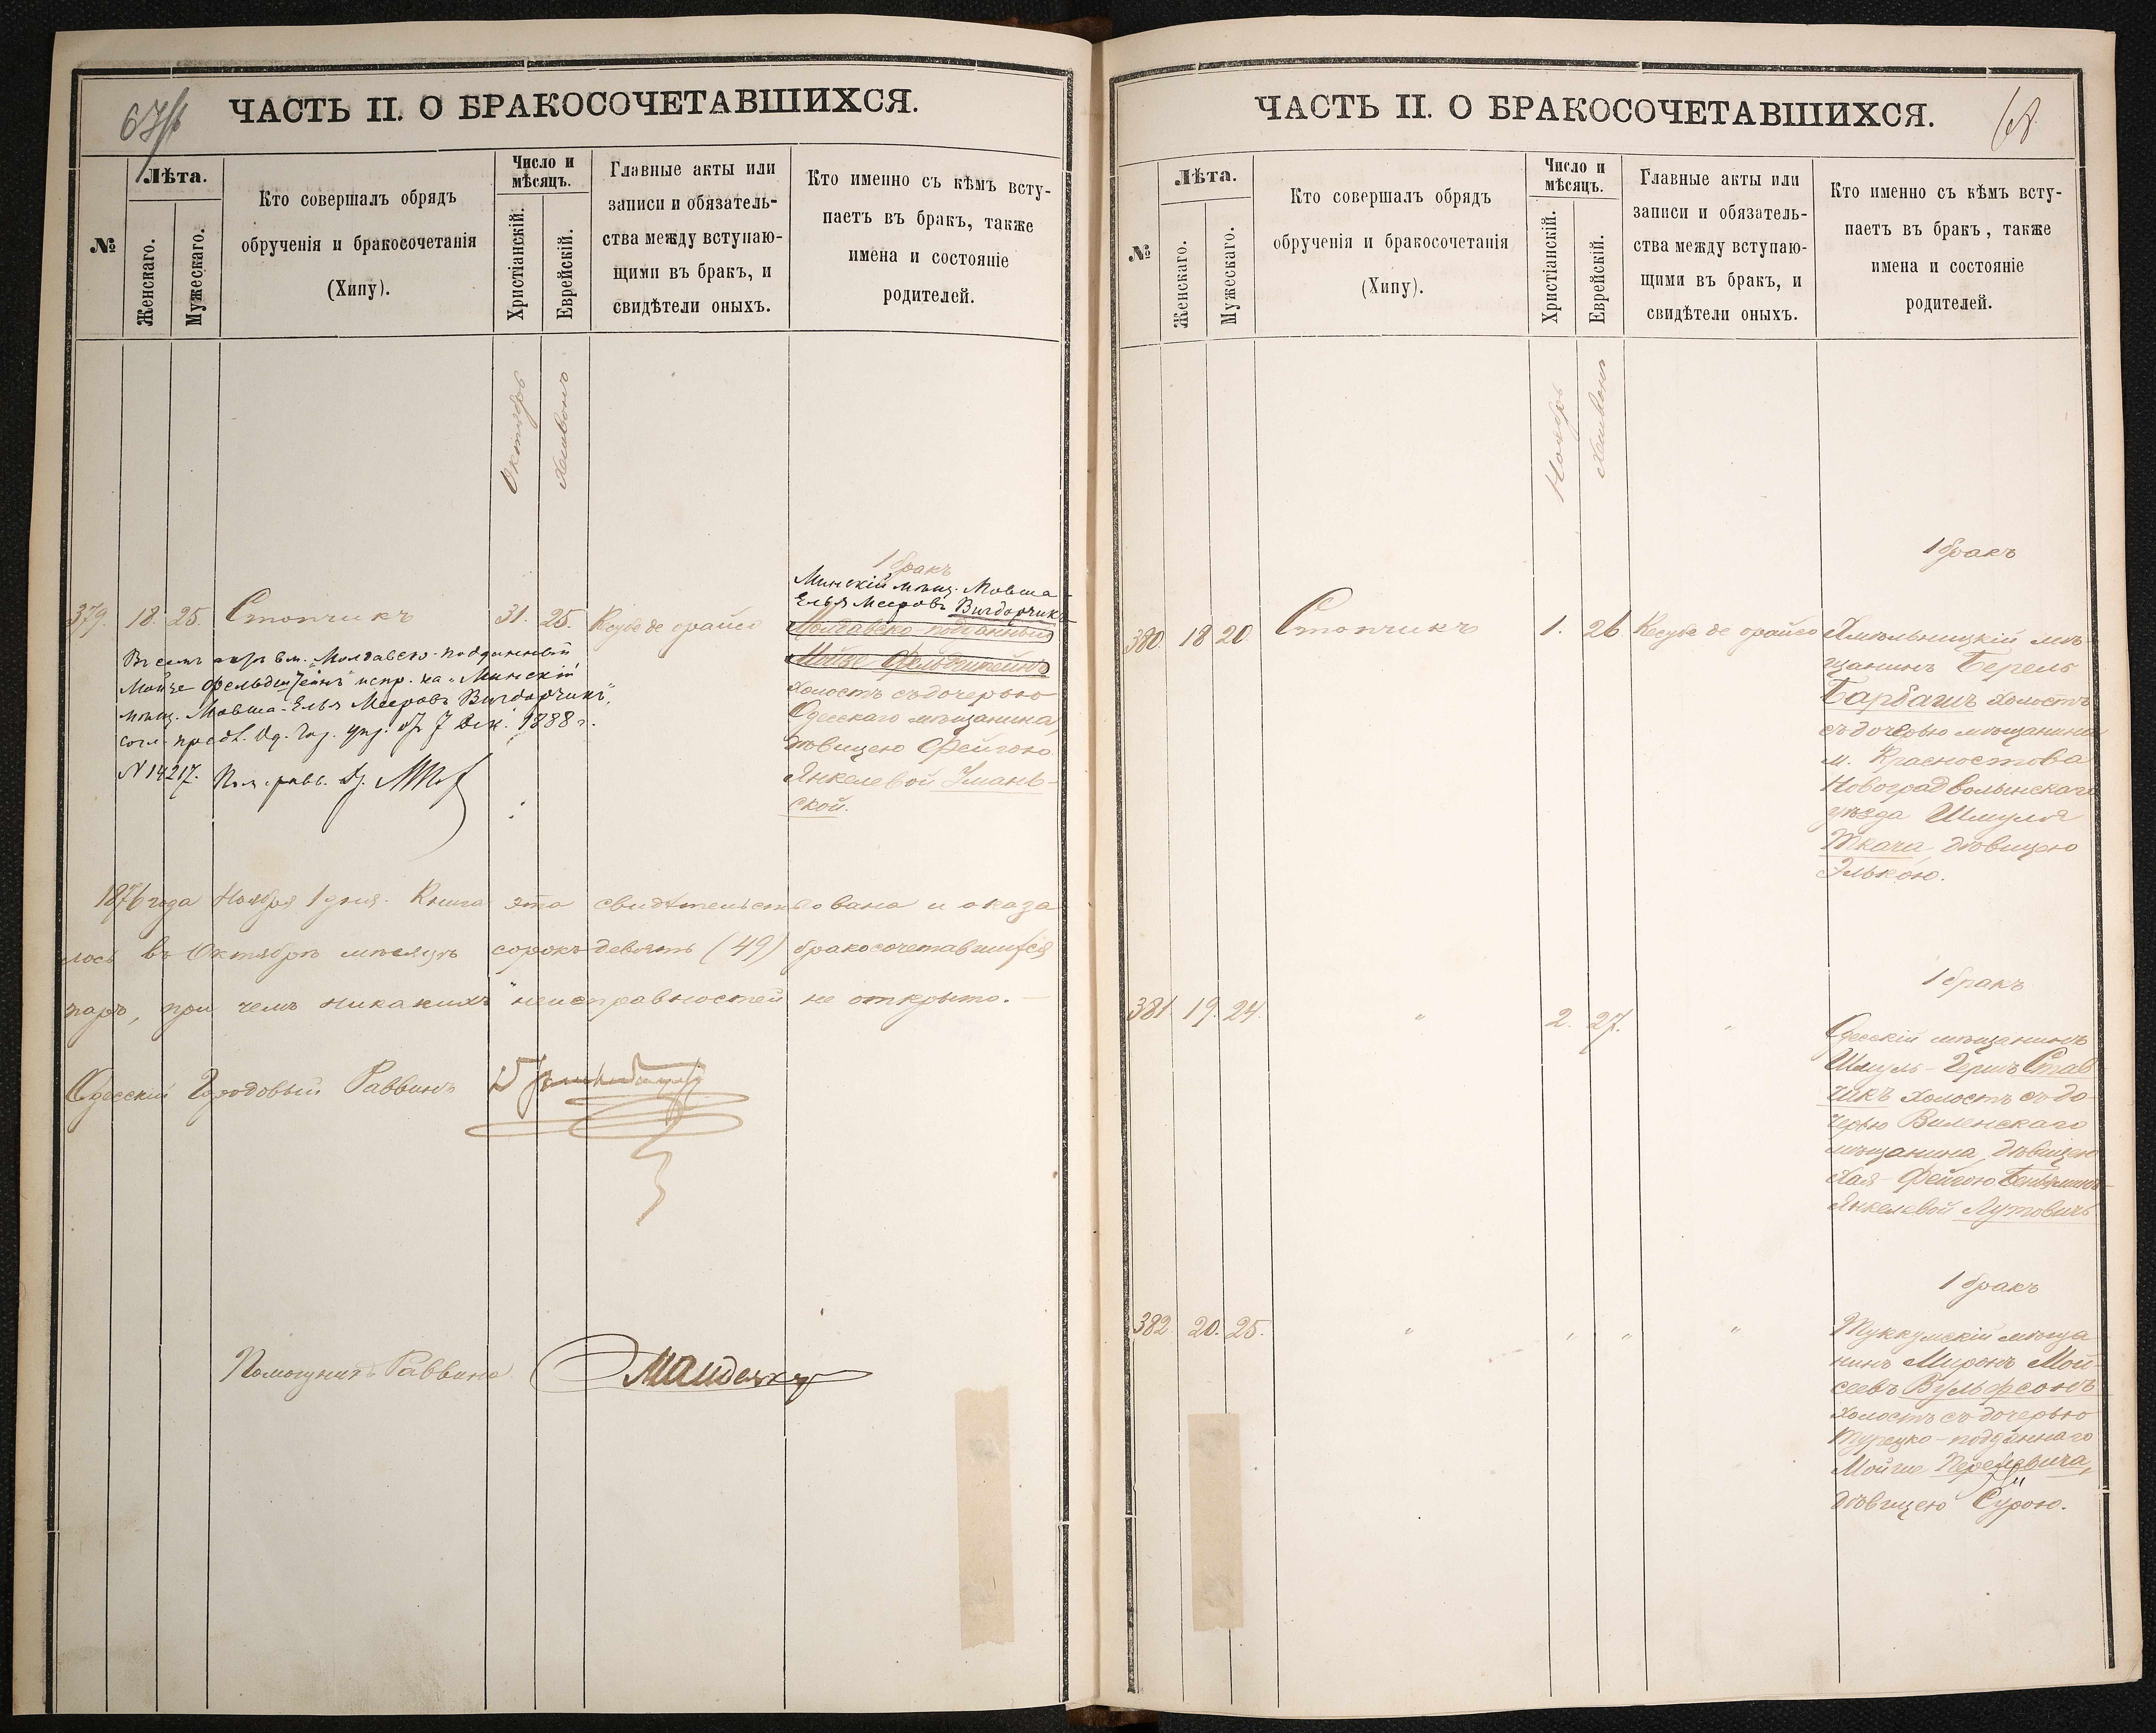 ЧАСТЬ II. О БРАКОСОЧЕТАВШИХСЯ.
№
Лѣта.
Женскаго.
Мужескаго.
Кто совершалъ обрядъ
обрученія и бракосочетанія
(Хипу).
Число и
мѣсяцъ.
Христіанскій.
Еврейскій.
Главные акты или
записи и обязатель-
ства между вступаю-
щими въ бракъ, и
свидѣтели оныхъ.
Кто именно съ кѣмъ всту-
паетъ въ бракъ, также
имена и состояніе
родителей.
Октябрь
Хешвонъ
379. 18. 25. Стопчикъ 31. 25. Кесубе де орайсо
1 бракъ
Минскій мѣщ. Мовша-
Елья Мееровъ Вигдорчикъ
Молдавско подданный
Мойзе Фельдштейнъ
холостъ съ дочерью
Одесскаго мѣщанина,
дѣвицею Фейгою
Янкелевой Умань-
ской.
Въ семъ актѣ вм. „Молдавско-подданный
Мойзе Фельдштейнъ" испр. на „Минскій
мѣщ. Мовша-Елья Мееровъ Вигдорчикъ",
согл. предл. Од. Гор. упр. отъ 7 Дек. 1888 г.
N 14217. Пом. равв. Д.
1876 года Ноября 1 дня. Книга эта свидѣтельствована и оказа
лось въ Октябрѣ мѣсяцѣ сорокъ девять (49) бракосочетавшихся
паръ, при чемъ никакихъ неисправностей не открыто.
Одесскій Городовый Раввинъ
Помощникъ Раввина
ЧАСТЬ II. О БРАКОСОЧЕТАВШИХСЯ.
68
№
Лѣта.
Женскаго.
Мужескаго.
Кто совершалъ обрядъ
обрученія и бракосочетанія
(Хипу).
Число и
мѣсяцъ.
Христіанскій.
Еврейскій.
Главные акты или
записи и обязатель-
ства между вступаю-
щими въ бракъ, и
свидѣтели оныхъ.
Кто именно съ кѣмъ всту-
паетъ въ бракъ, также
имена и состояніе
родителей.
Ноябрь
Хешвонъ
1 бракъ
380. 18 20. Стопчикъ 1. 26 Кесубе де орайсо
Хмѣльницкій мѣ-
щанинъ Берель
Барбашъ холостъ
съ дочерью мѣщанина
м. Красностова
Новоградволынскаго
уѣзда Шмуля
Ткача, дѣвицею
Элькою.
1 бракъ
381. 19. 24. " 2. 27. "
Одесскій мѣщанинъ
Шмуль-Гершъ Став
чикъ холостъ съ до-
черью Виленскаго
мѣщанина, дѣвицею
Хая-Фейгою Беньяминъ-
Янкелевой Лутовичъ
1 бракъ
382. 20. 25. " " " "
Туккумскій мѣща
нинъ Миронъ Мой-
сеевъ Вульфсонъ
холостъ съ дочерью
Турецко-подданнаго
Мойше
дѣвицею Сурою.